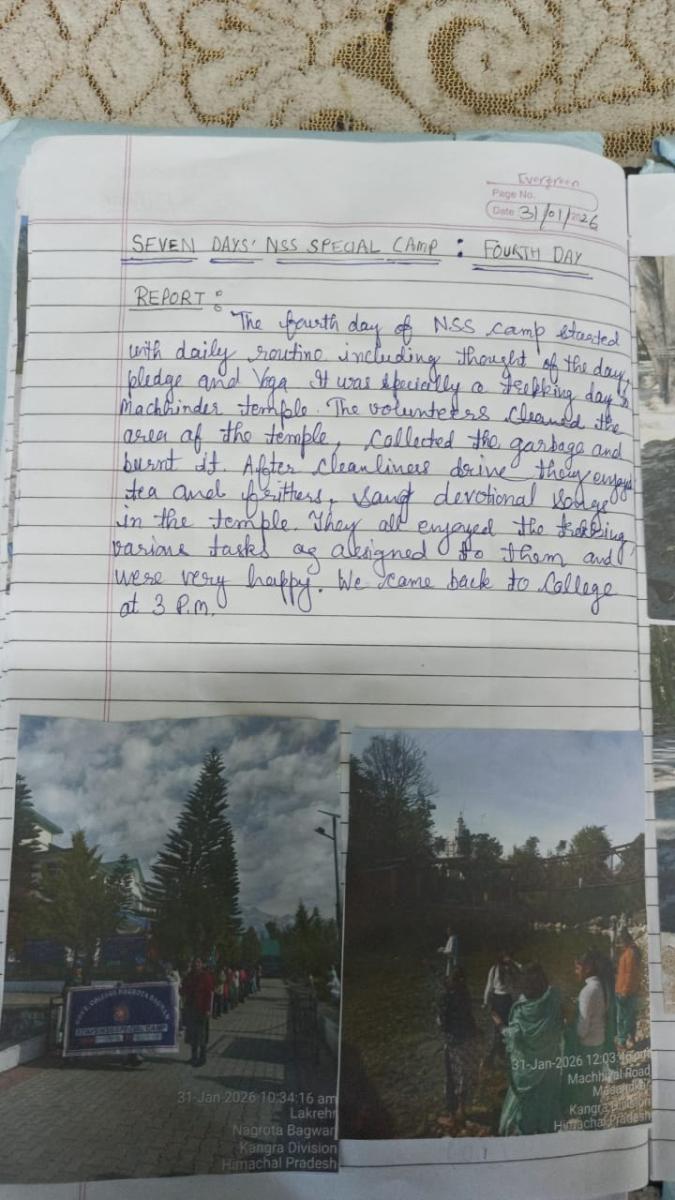 Evergreen
Page No.
Date 31/01/2026
SEVEN DAYS' NSS SPECIAL CAMP : FOURTH DAY
REPORT :
The fourth day of NSS camp started
with daily routine including thought of the day,
pledge and Yoga. It was specially a trekking day
Machhinder temple. The volunteers cleaned the
area of the temple, collected the garbage and
burnt it. After cleanliness drive they enjoyed
tea and fritters, sang devotional songs
in the temple. They all enjoyed the trekking,
various tasks as assigned to them and
were very happy. We came back to College
at 3 P.M.
COLLEGE NAGROTA BAGWAN
SPECIAL CAMP
31-Jan-2026 10:34:16 am
Lakrehr
Nagrota Bagwan
Kangra Division
Himachal Pradesh
31-Jan-2026 12:03
Machhiyal Road
Kangra Division
Himachal Pradesh